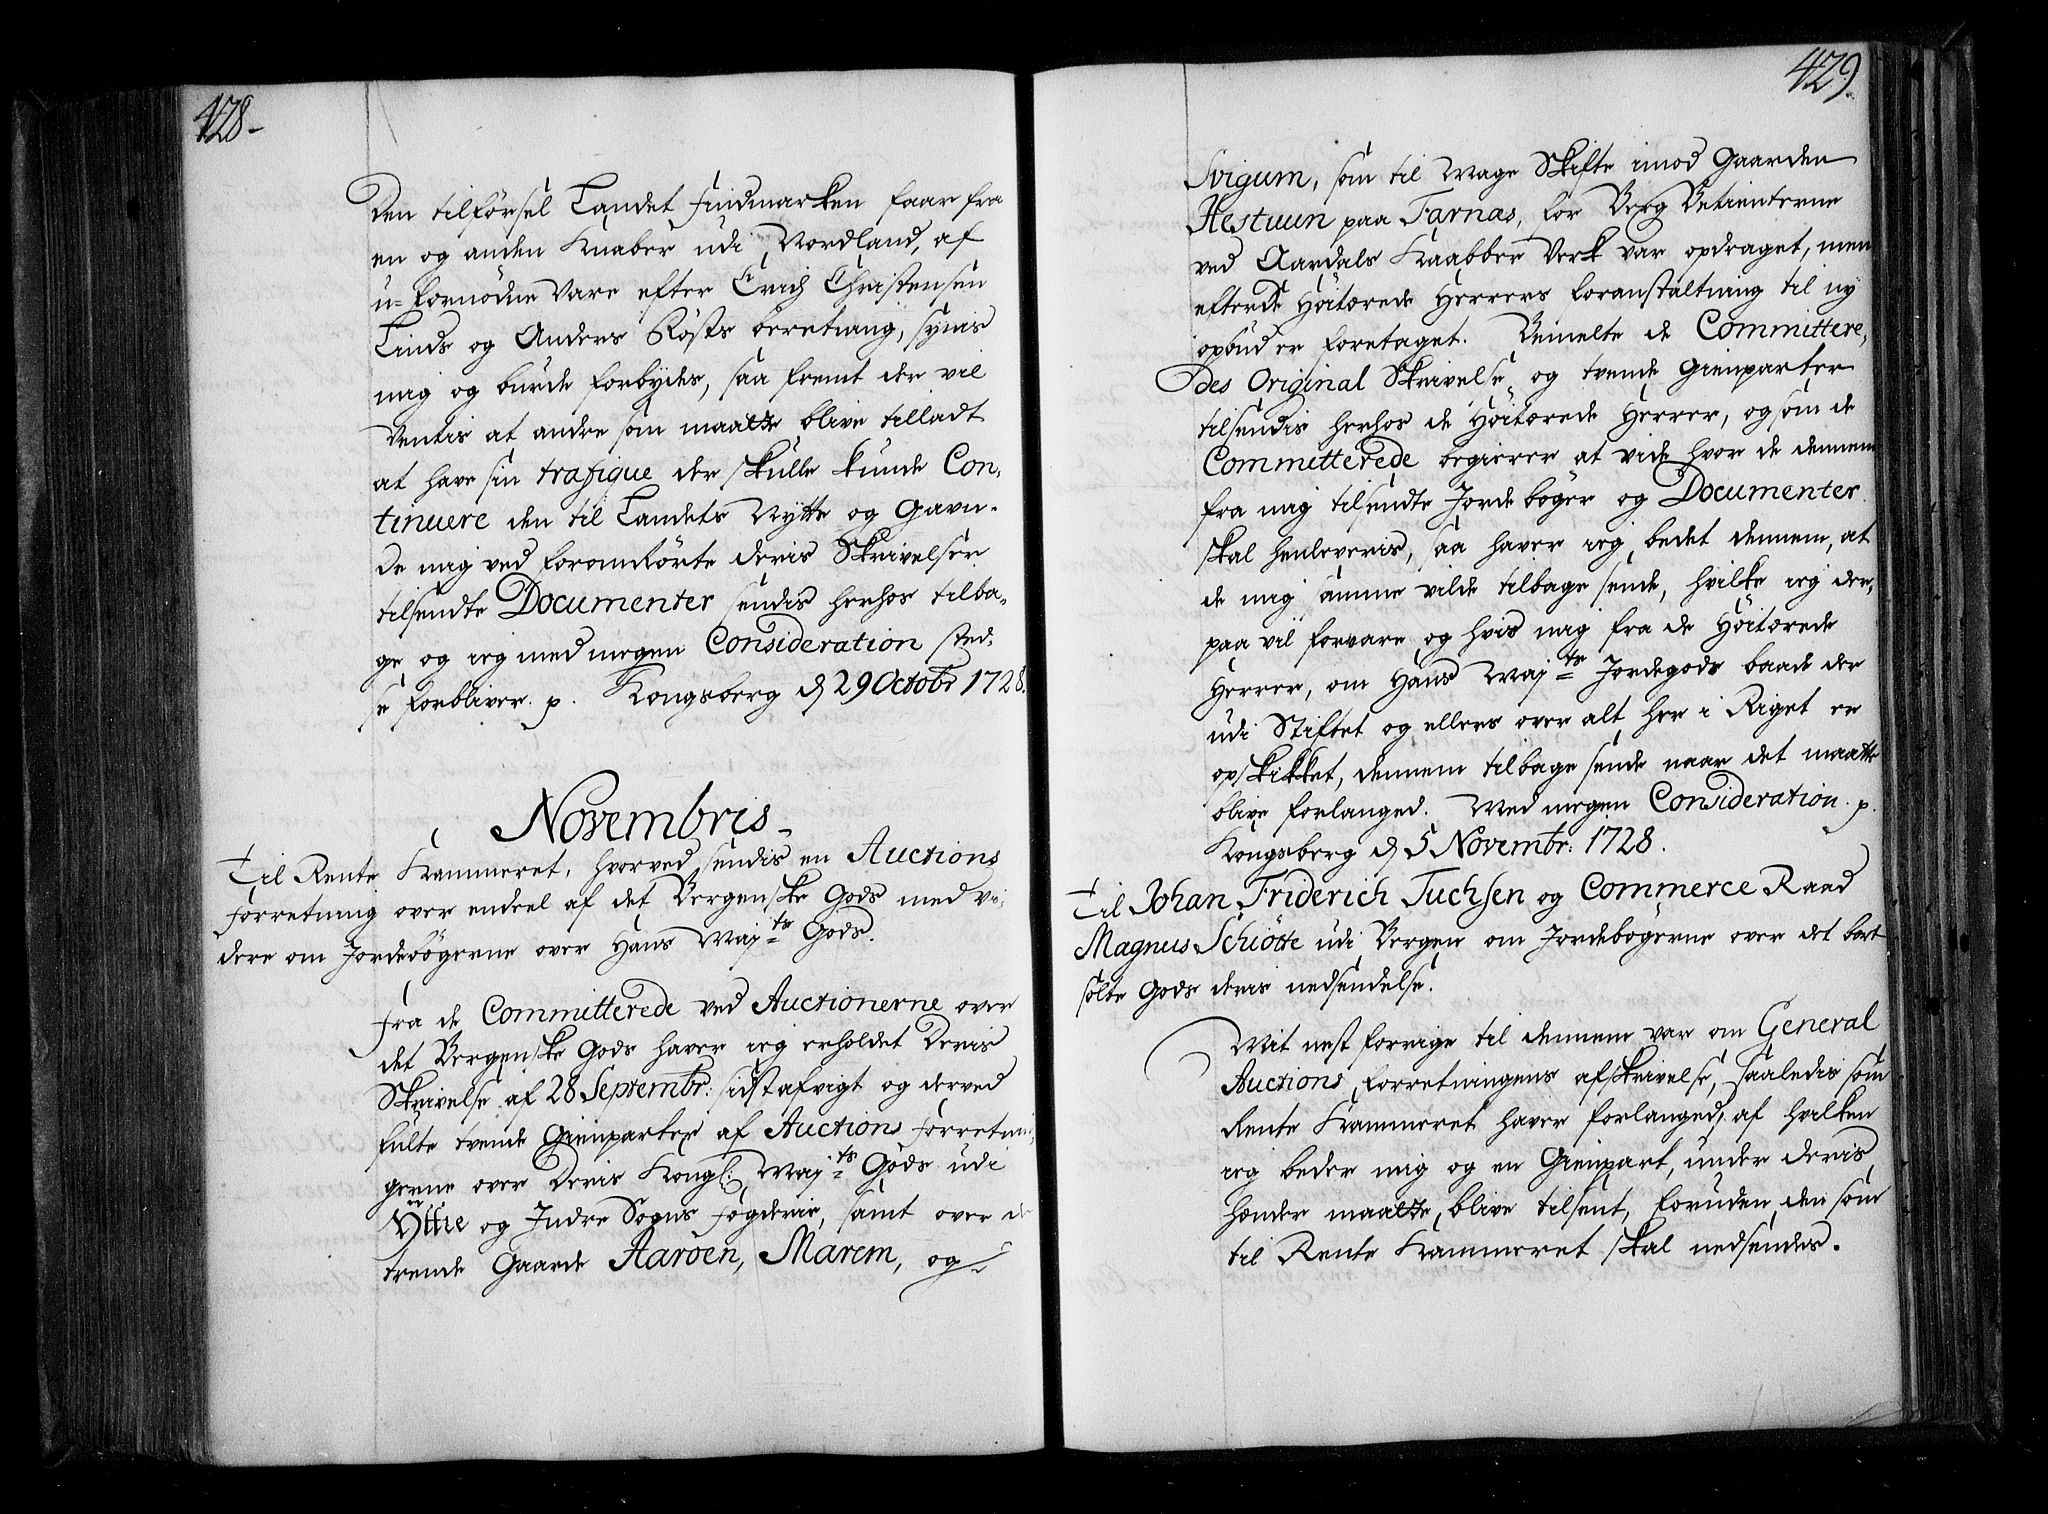 428.
Den tilförsel Landet Findmarken faar fra
en og anden Knaber udi Nordland, af
u-fornödne Vare efter Erich Christensen
Linds og Anders Rösts beretning, synis
mig og burde forbydes, saa fremt der vil
Ventis at andre som maatte blive tilladt
at have sin trafique der skulle kunde Con-
tinuere den til Landets Nytte og Gavn.
De mig ved foromrörte deris Skrivelser
tilsendte Documenter sendis herhos tilba-
ge og ieg med megen Consideration sted-
se forbliver. p. Kongsberg d 29 Octobr 1728.
Novembris.
Til Rente Kammeret, hvorved sendis en Auctions
Forretning over endeel af det Bergenske Gods med vi-
dere om Jordebögerne over Hans Maj:ts Gods.
Fra de Committerede ved Auctionerne over
det Bergenske Gods haver ieg erholdet Deris
Skrivelse af 28 Septembr: sidst afvigt og derved
fulte tvende Gienparter af Auctions Forretnin-
gerne over Deris Kongl: Maj:ts Gods udi
Yttre og Indre Sogns Fogderie, samt over de
trende Gaarde Aaröen, Marem, og
429.
Svigum, som til Mage Skifte imod Gaarden
Hestuun paa Farnas, for Berg Betienterne
ved Aardals Kaabber Verk var opdraget, men
efter de Höitærede Herrers foranstaltning til ny
opbud er foretaget. Bemelte de Committere-
des Original Skrivelse og tvende Gienparter
tilsendis herhos de Höitærede Herrer, og som de
Committerede begierer at vide hvor de dennem
fra mig tilsendte Jordeböger og Documenter
skal henleveris, saa haver ieg bedet dennem, at
de mig samme vilde tilbage sende, hvilke ieg der-
paa vil forvare og hvis mig fra de Höitærede
Herrer, om Hans Maj:ts Jordegods baade der
udi Stiftet og ellers over alt her i Riget er
opskikket, dennem tilbage sende naar det maatte
blive forlanged. Med megen Consideration. p.
Kongsberg d 5 Novembr: 1728.
Til Johan Friderich Tuchsen og Commerce Raad
Magnus Schiötte udi Bergen om Jordebögerne over det bort
solte Gods deris nedsendelse.
Mit nest forrige til dennem var om General
Auctions forretningens afskrivelse, saaledis som
Rente Kammeret haver forlanged, af hvilken
ieg beder mig og en Gienpart, under deris
Hænder maatte blive tilsent, foruden den som
til Rente Kammeret skal nedsendes.